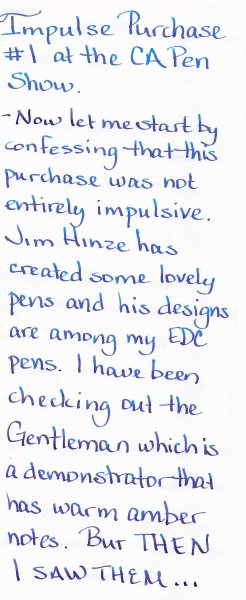 Impulse Purchase
#1 at the CA Pen
Show.
-Now let me start by
confessing that this
purchase was not
entirely impulsive.
Jim Hinze has
created some lovely
pens and his designs
are among my EDC
pens. I have been
checking out the
Gentleman which is
a demonstrator that
has warm amber
notes. But THEN
I SAW THEM...